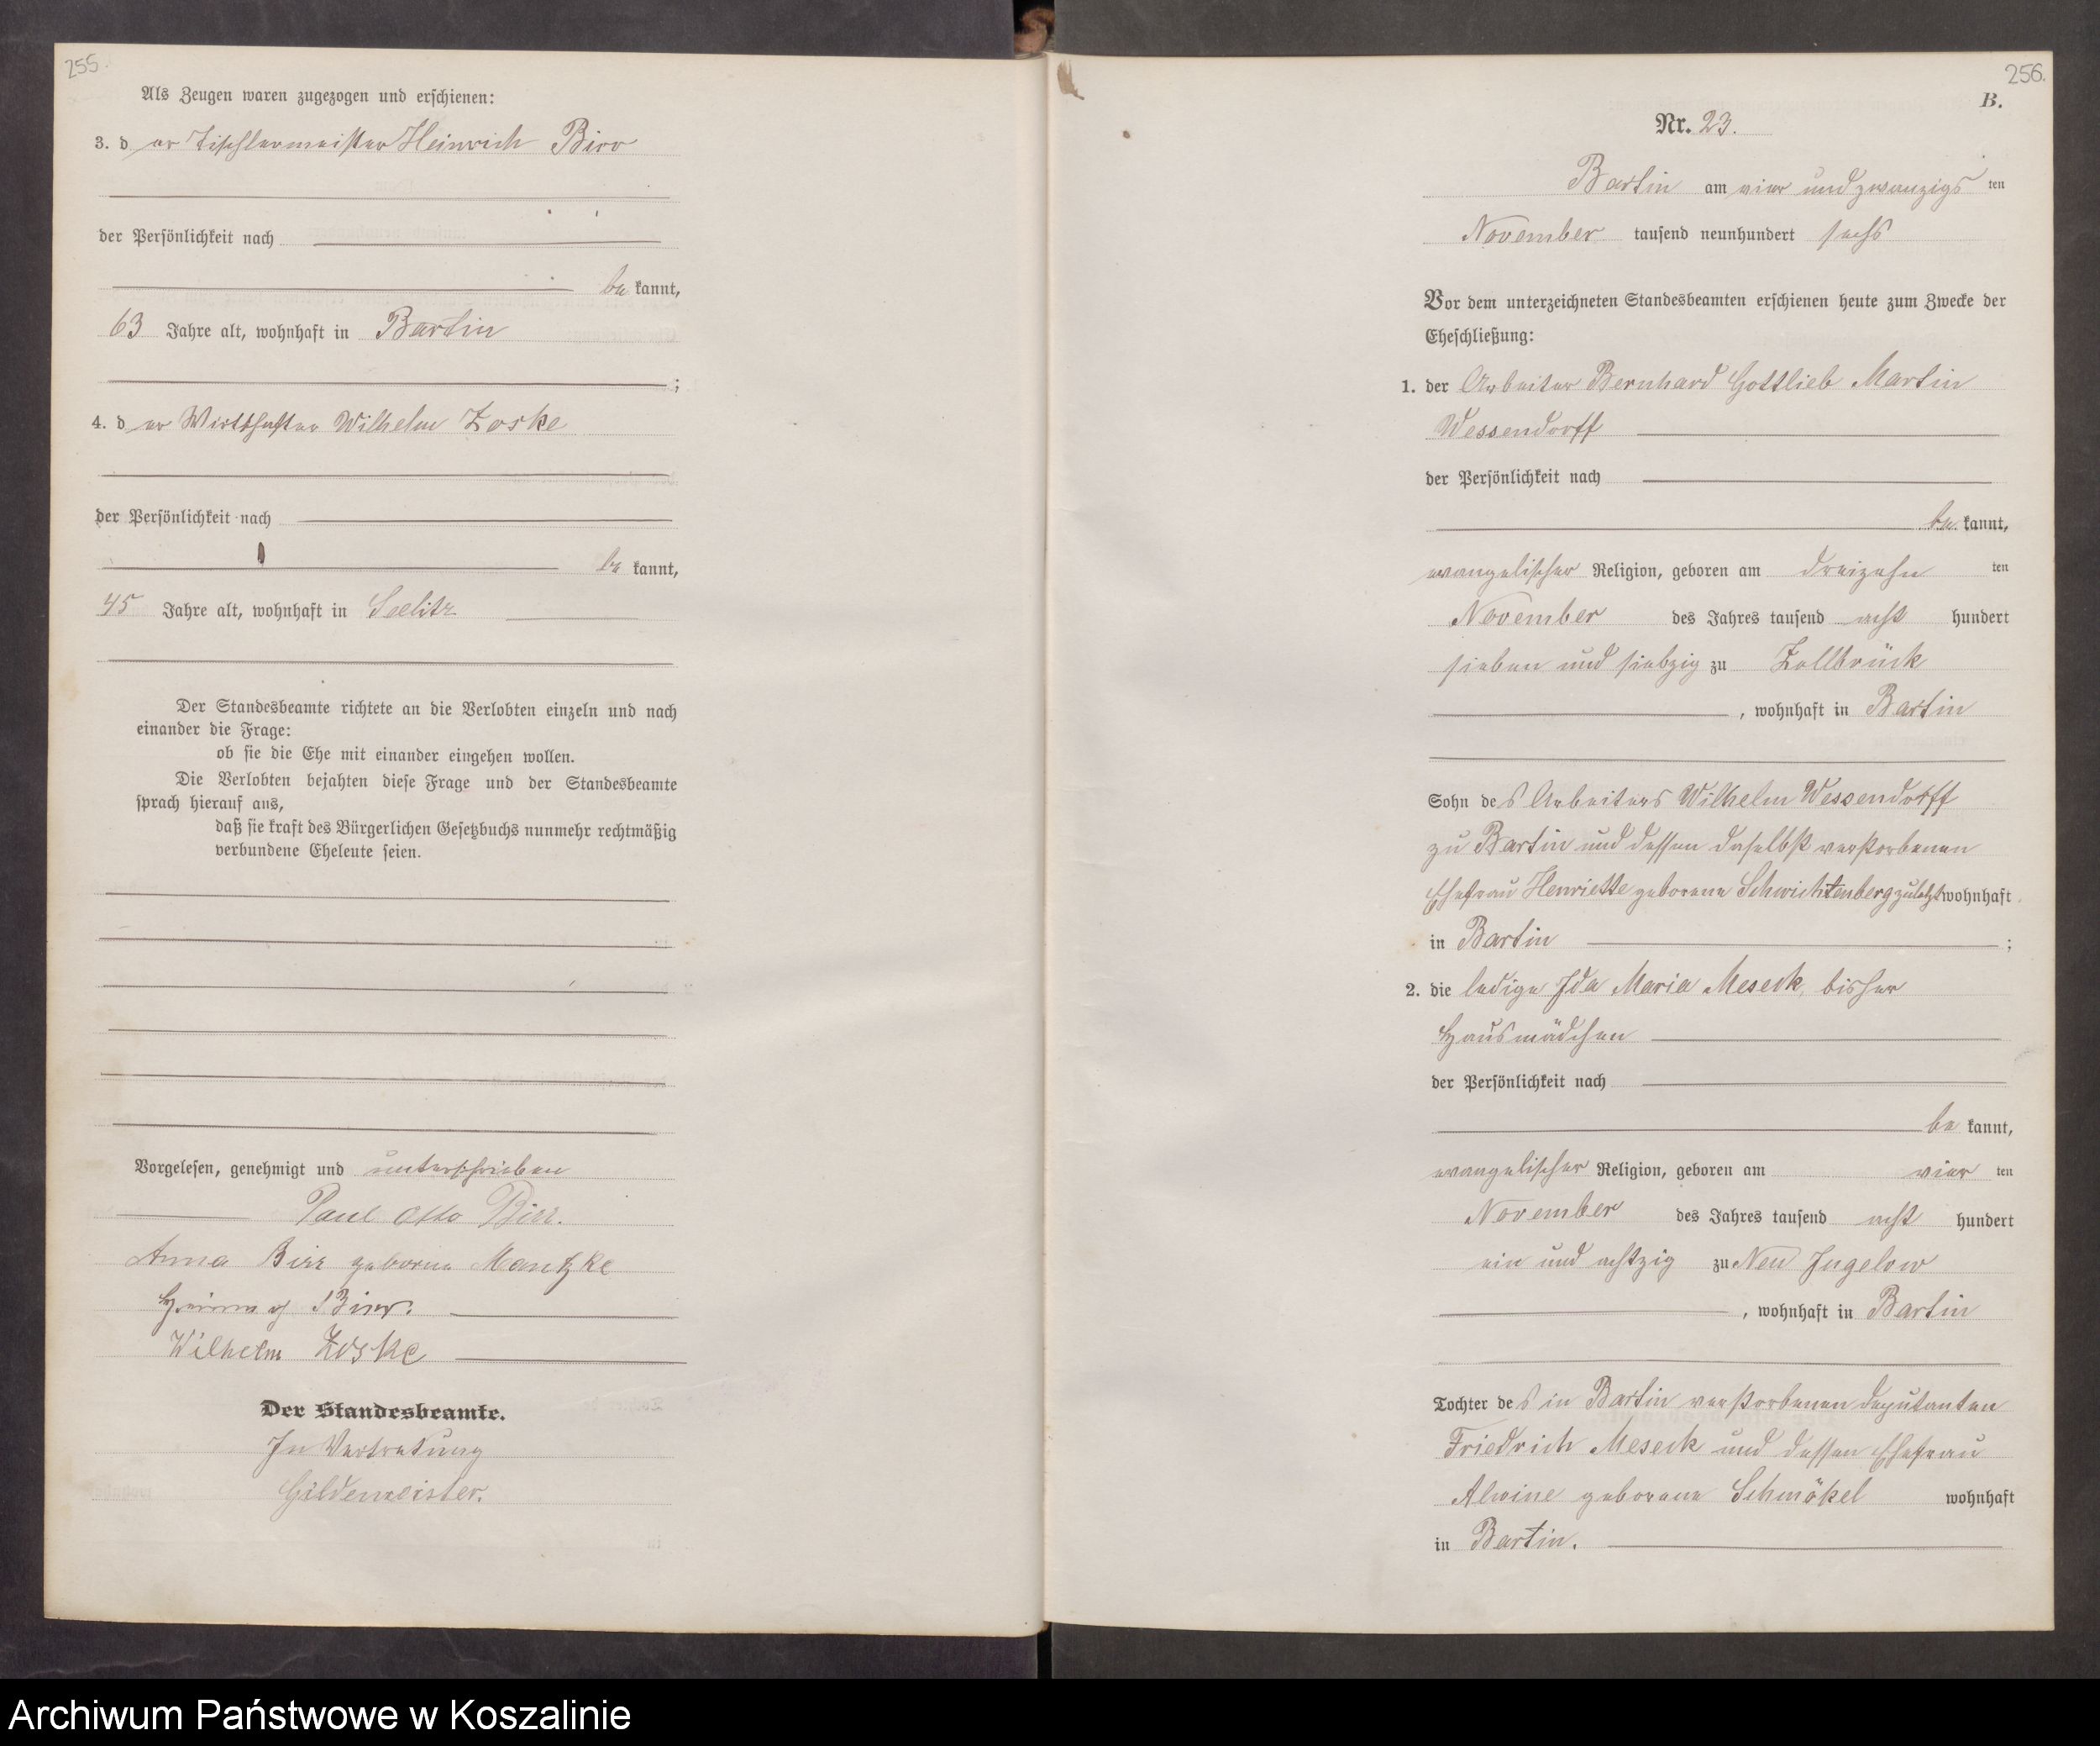 255.
Als Zeugen waren zugezogen und erschienen:
3. der Tischlermeister Heinrich Birr
der Persönlichkeit nach
be kannt,
63 Jahre alt, wohnhaft in Bartin
;
4. der Wirthschafter Wilhelm Zoske
der Persönlichkeit nach
be kannt,
45 Jahre alt, wohnhaft in Seelitz
Der Standesbeamte richtete an die Verlobten einzeln und nach
einander die Frage:
ob sie die Ehe mit einander eingehen wollen.
Die Verlobten bejahten diese Frage und der Standesbeamte
sprach hierauf aus,
daß sie kraft des Bürgerlichen Gesetzbuchs nunmehr rechtmäßig
verbundene Eheleute seien.
Vorgelesen, genehmigt und unterschrieben
Paul Otto Birr.
Anna Birr geborene Mantzke
Heinrich Birr.
Wilhelm Zoske
Der Standesbeamte.
In Vertretung
Gildemeister.
256.
B.
Nr. 23.
Bartin am vier und zwanzigs ten
November tausend neunhundert sechs
Vor dem unterzeichneten Standesbeamten erschienen heute zum Zwecke der
Eheschließung:
1. der Arbeiter Bernhard Gottlieb Martin
Wessendorff
der Persönlichkeit nach
be kannt,
evangelischer Religion, geboren am dreizehn ten
November des Jahres tausend acht hundert
sieben und siebzig zu Zollbrück
, wohnhaft in Bartin
Sohn des Arbeiters Wilhelm Wessendorff
zu Bartin und dessen daselbst verstorbenen
Ehefrau Henriette geborene Schwichtenberg zuletzt wohnhaft
in Bartin ;
2. die ledige Ida Maria Meseck, bisher
Hausmädchen
der Persönlichkeit nach
be kannt,
evangelischer Religion, geboren am vier ten
November des Jahres tausend acht hundert
ein und achtzig zu Neu Jugelow
, wohnhaft in Bartin
Tochter des in Bartin verstorbenen Deputanten
Friedrich Meseck und dessen Ehefrau
Alwine geborene Schmökel wohnhaft
in Bartin.
Archiwum Państwowe w Koszalinie